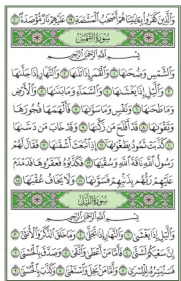 وَالَّذِينَ كَفَرُوا بِـَٔايَٰتِنَا هُمْ أَصْحَٰبُ ٱلْمَشْـَٔمَةِ ١٩ عَلَيْهِمْ نَارٌ مُّؤْصَدَةٌۢ ٢٠
سُورَةُ الشَّمْسِ
بِسْمِ ٱللَّهِ ٱلرَّحْمَٰنِ ٱلرَّحِيمِ
وَٱلشَّمْسِ وَضُحَىٰهَا ١ وَٱلْقَمَرِ إِذَا تَلَىٰهَا ٢ وَٱلنَّهَارِ إِذَا جَلَّىٰهَا
٣ وَٱلَّيْلِ إِذَا يَغْشَىٰهَا ٤ وَٱلسَّمَآءِ وَمَا بَنَىٰهَا ٥ وَٱلْأَرْضِ
وَمَا طَحَىٰهَا ٦ وَنَفْسٍ وَمَا سَوَّىٰهَا ٧ فَأَلْهَمَهَا فُجُورَهَا
وَتَقْوَىٰهَا ٨ قَدْ أَفْلَحَ مَن زَكَّىٰهَا ٩ وَقَدْ خَابَ مَن دَسَّىٰهَا
١٠ كَذَّبَتْ ثَمُودُ بِطَغْوَىٰهَآ ١١ إِذِ ٱنۢبَعَثَ أَشْقَىٰهَا ١٢ فَقَالَ لَهُمْ
رَسُولُ ٱللَّهِ نَاقَةَ ٱللَّهِ وَسُقْيَٰهَا ١٣ فَكَذَّبُوهُ فَعَقَرُوهَا فَدَمْدَمَ
عَلَيْهِمْ رَبُّهُم بِذَنۢبِهِمْ فَسَوَّىٰهَا ١٤ وَلَا يَخَافُ عُقْبَٰهَا ١٥
سُورَةُ اللَّيْلِ
بِسْمِ ٱللَّهِ ٱلرَّحْمَٰنِ ٱلرَّحِيمِ
وَٱلَّيْلِ إِذَا يَغْشَىٰ ١ وَٱلنَّهَارِ إِذَا تَجَلَّىٰ ٢ وَمَا خَلَقَ ٱلذَّكَرَ وَٱلْأُنثَىٰٓ ٣
إِنَّ سَعْيَكُمْ لَشَتَّىٰ ٤ فَأَمَّا مَنْ أَعْطَىٰ وَٱتَّقَىٰ ٥ وَصَدَّقَ بِٱلْحُسْنَىٰ ٦
فَسَنُيَسِّرُهُۥ لِلْيُسْرَىٰ ٧ وَأَمَّا مَنۢ بَخِلَ وَٱسْتَغْنَىٰ ٨ وَكَذَّبَ بِٱلْحُسْنَىٰ ٩